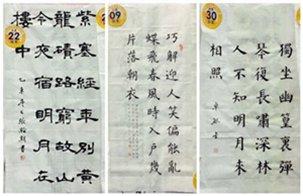 22
紫塞經年別黃
龍磧路窮故山
今夜宿明月在
樓中
09
巧解迎人笑偏能亂
蝶飛春風時入戶幾
片落朝衣
30
獨坐幽篁裏彈
琴復長嘯深林
人不知明月來
相照